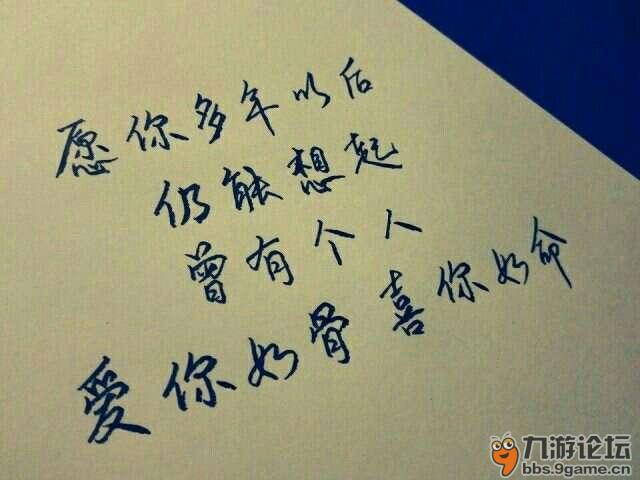 愿你多年以后
仍能想起
曾有个人
爱你如骨喜你如命
九游论坛
bbs.9game.cn